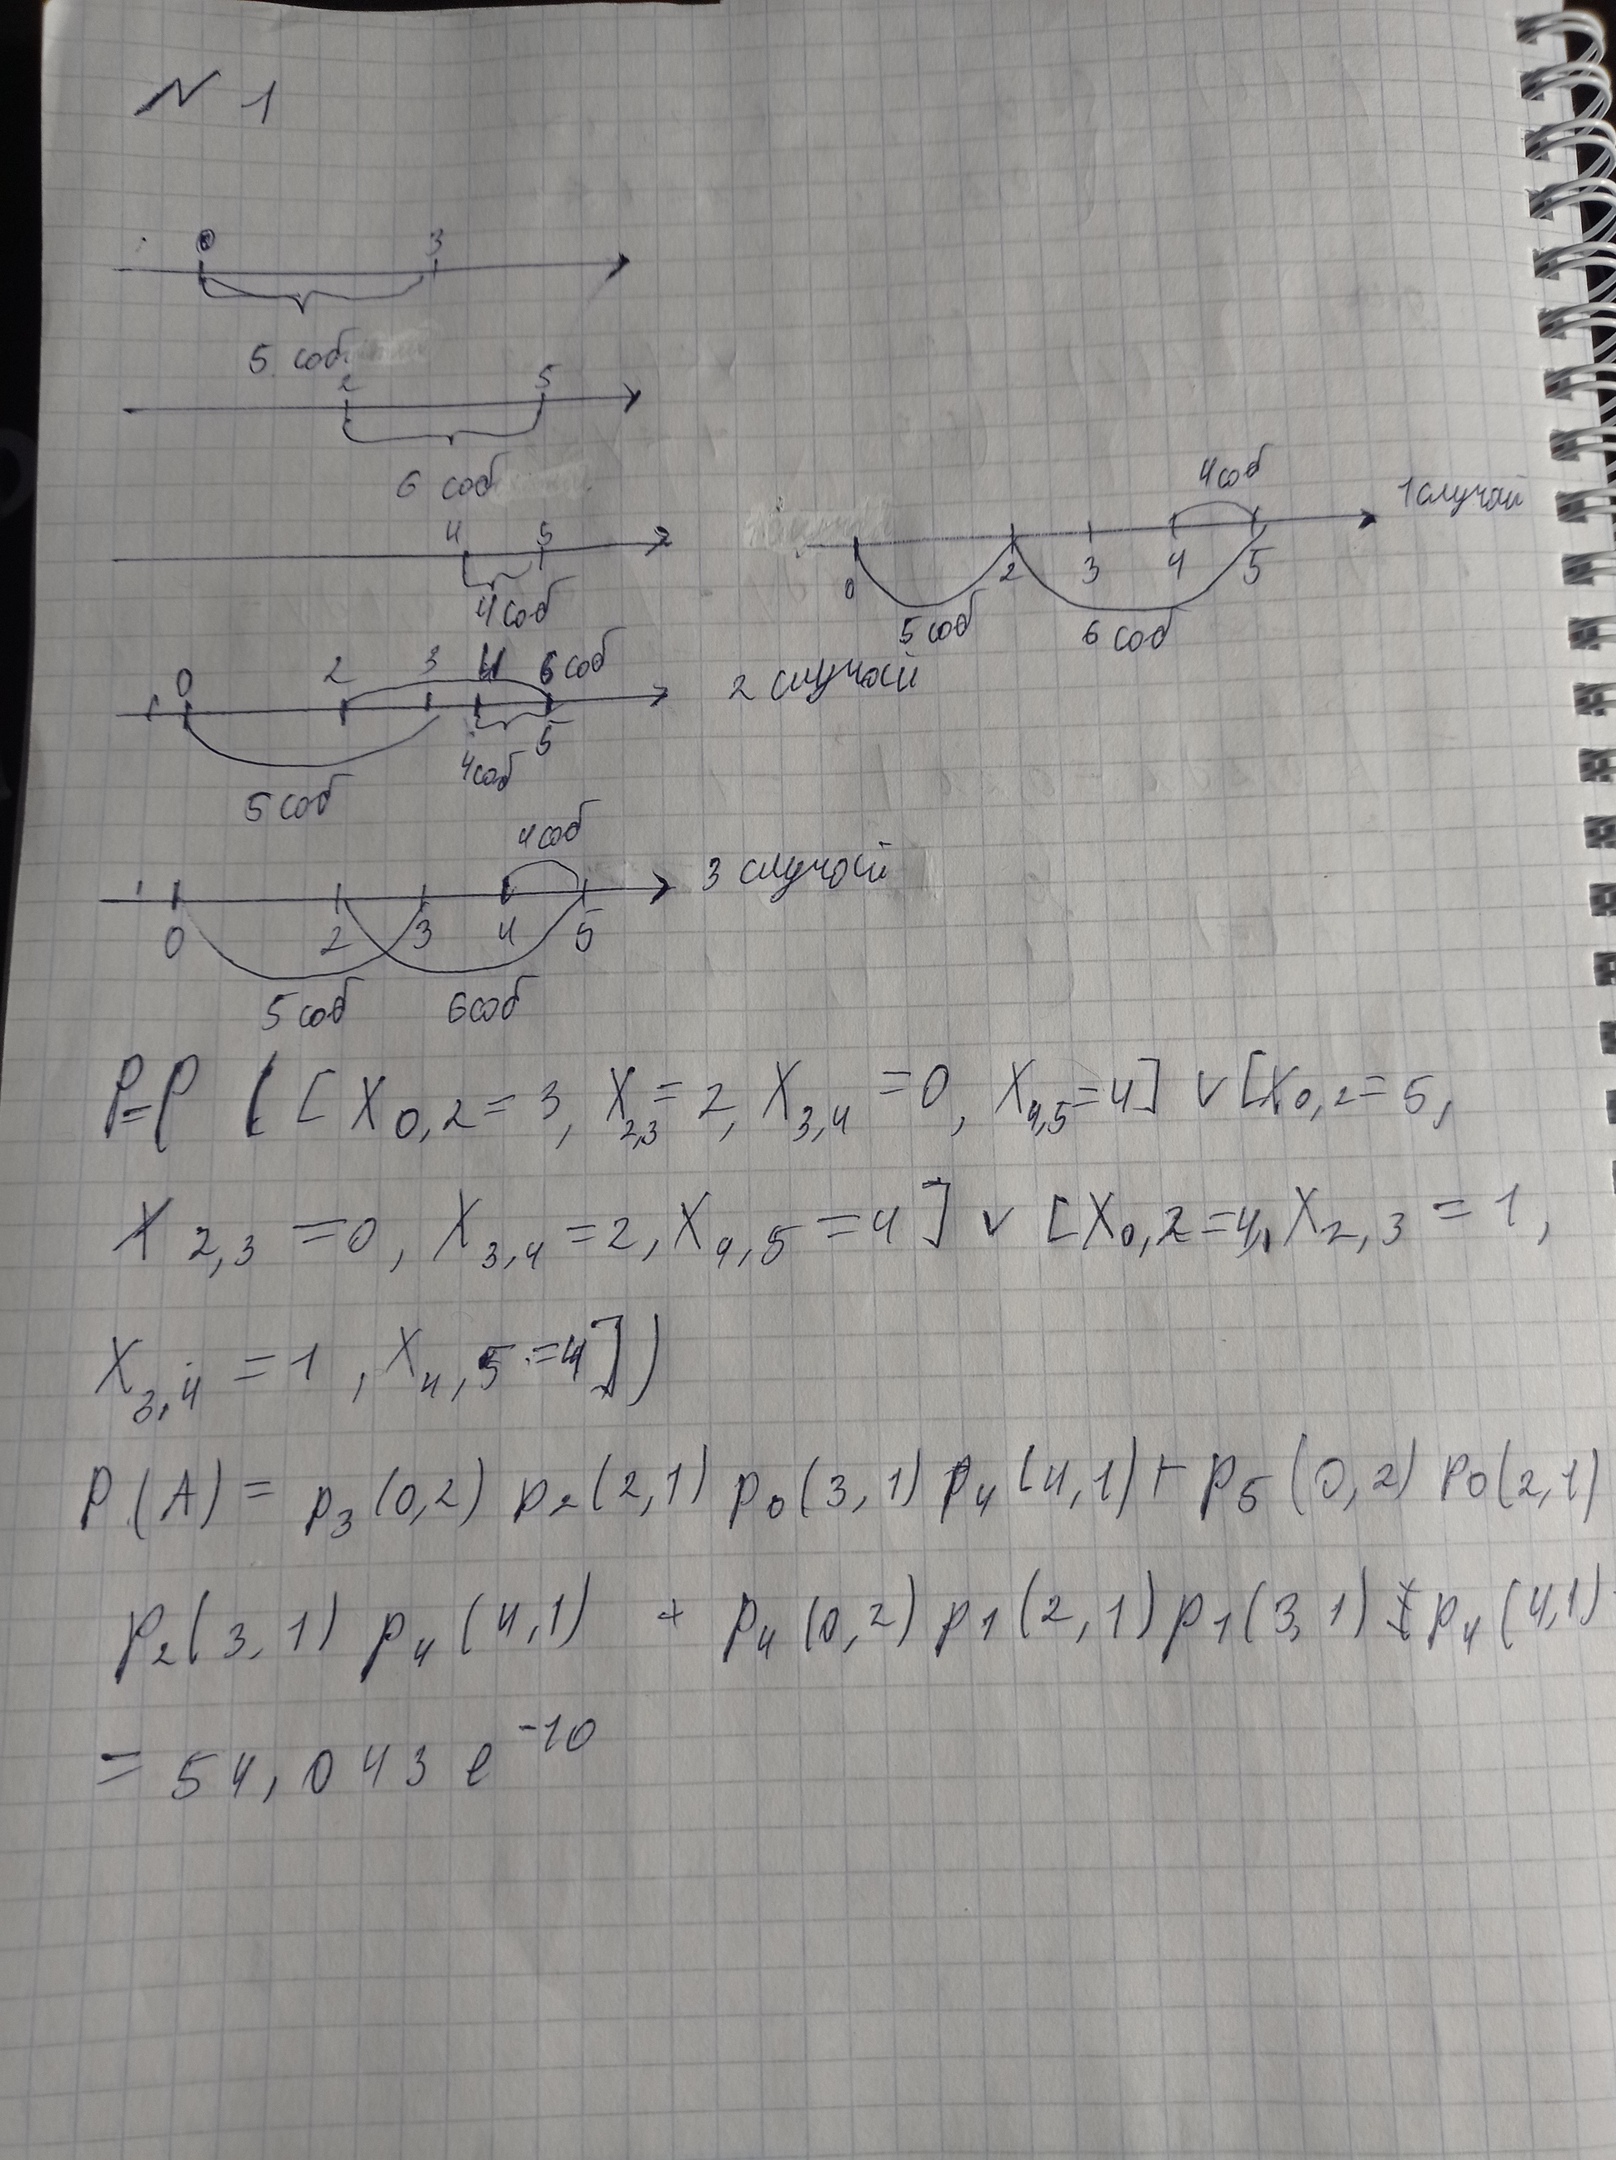 N 1
0 3
5 соб
2 5
6 соб
4 5
4 соб
4 соб 1 случай
0 2 3 4 5
5 соб 6 соб
0 2 3 4 6 соб 2 случай
4 соб 5
5 соб
4 соб
3 случай
0 2 3 4 5
5 соб 6 соб
P=P ([X0,2=3, X2,3=2, X3,4=0, X4,5=4] v [X0,2=5,
X2,3=0, X3,4=2, X4,5=4] v [X0,2=4, X2,3=1,
X3,4=1, X4,5=4])
P(A)= p3(0,2) p2(2,1) p0(3,1) p4(4,1)+ p5(0,2) p0(2,1)
p2(3,1) p4(4,1) + p4(0,2) p1(2,1) p1(3,1) p4(4,1)
= 54,043 e^-10